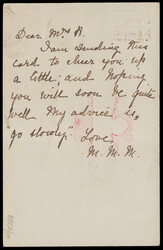 Dear Mrs B.
I am sending this
card to cheer you up
a little; and hoping
you will soon be quite
well. My advice is
"go slowly." Love,
M. M. M.